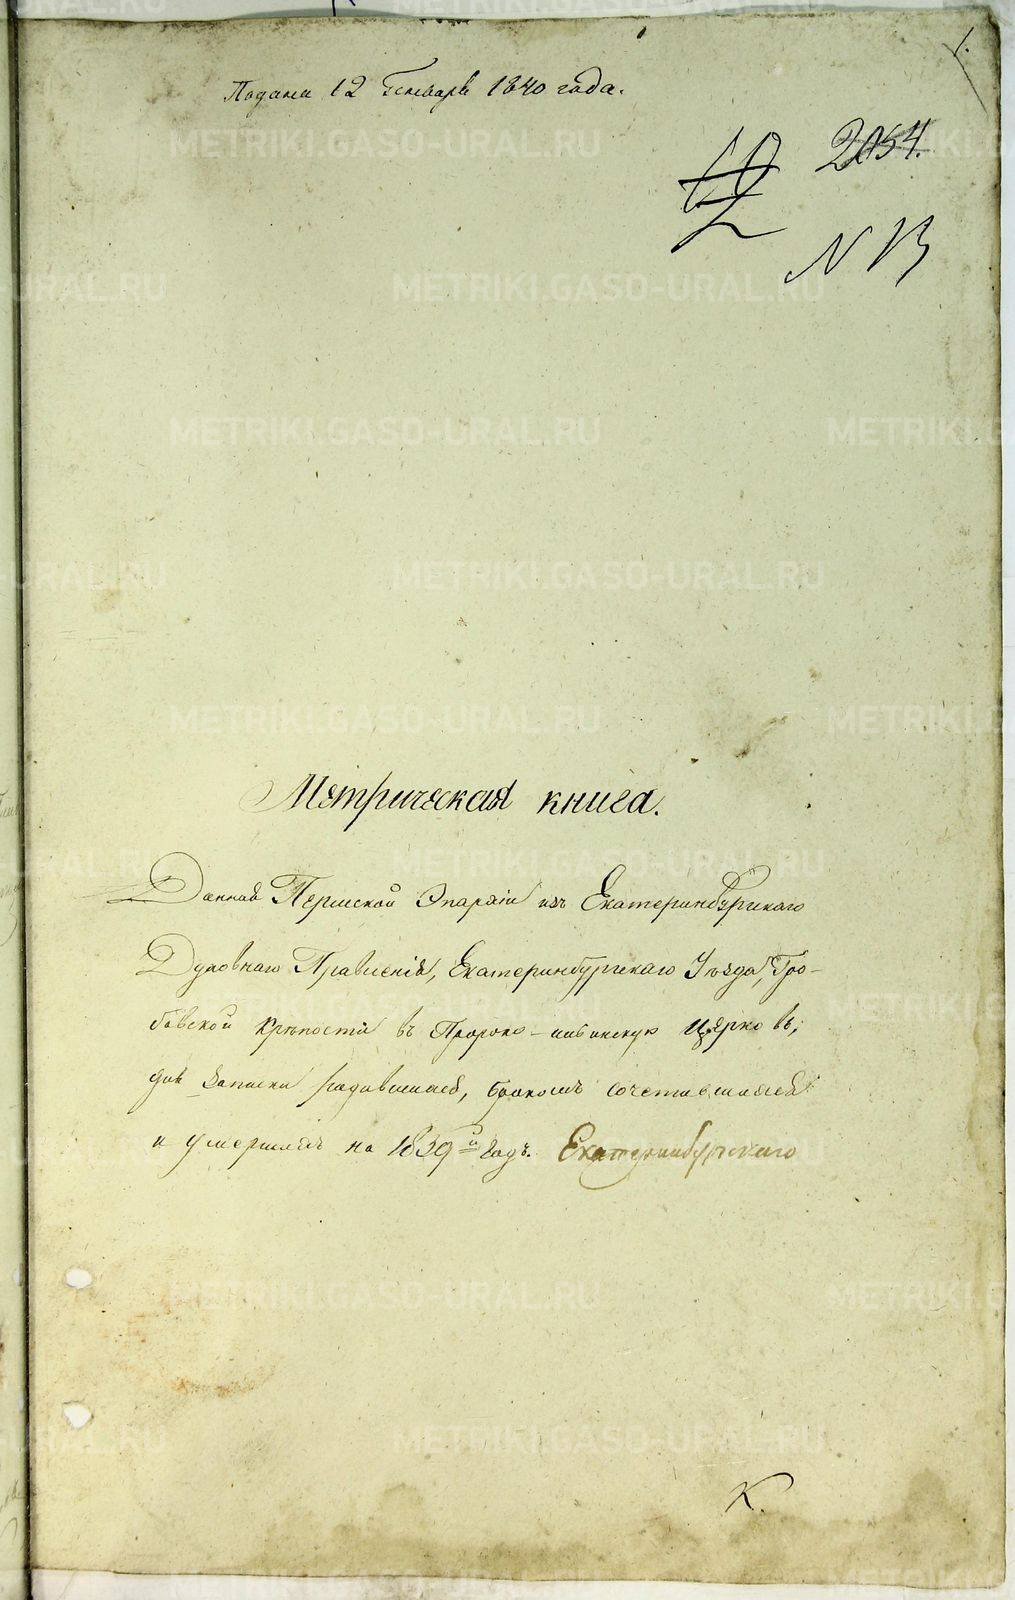 1.
Подана 12 Генваря 1840 года.
2054.
N 13
Метрическая книга.
Данная Пермской Эпархіи изъ Екатеринбургскаго
Духовнаго Правленія, Екатеринбургскаго Уѣзда, Гро-
бовской крѣпости въ Пророко-Ильинскую церковь,
для записки родившихся, бракомъ сочетавшихся
и умершихъ на 1839й годъ. Екатеринбургскаго
К.
METRIKI.GASO-URAL.RU